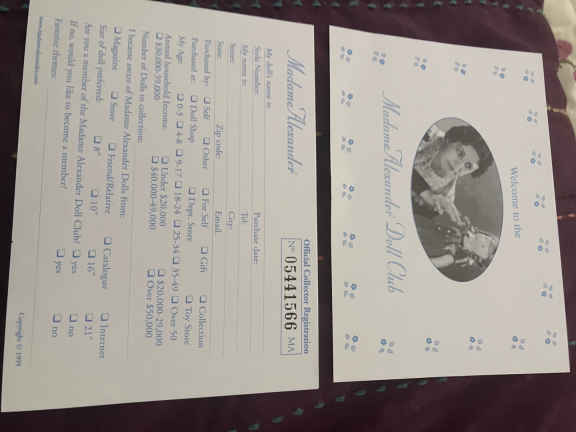 Welcome to the
Madame Alexander Doll Club
Madame Alexander
Official Collector Registration
Nº 05441566 MA
My doll's name is:
Style Number: Purchase date:
My name is: Tel:
Street: City:
State: Zip code: Email:
Purchased by: ❑ Self ❑ Other ❑ For Self ❑ Gift ❑ Collection
Purchased at: ❑ Doll Shop ❑ Dept. Store ❑ Toy Store
My Age: ❑ 0-5 ❑ 4-8 ❑ 9-17 ❑ 18-24 ❑ 25-34 ❑ 35-49 ❑ Over 50
Annual household Income: ❑ Under $20,000 ❑ $20,000-29,000
❑ $30,000-39,000 ❑ $40,000-49,000 ❑ Over $50,000
Number of Dolls in collection:
I became aware of Madame Alexander Dolls from:
❑ Magazine ❑ Store ❑ Friend/Relative ❑ Catalogue ❑ Internet
Size of doll preferred: ❑ 8" ❑ 10" ❑ 16" ❑ 21"
Are you a member of the Madame Alexander Doll Club? ❑ yes ❑ no
If no, would you like to become a member? ❑ yes ❑ no
Favorite themes:
Copyright © 1999